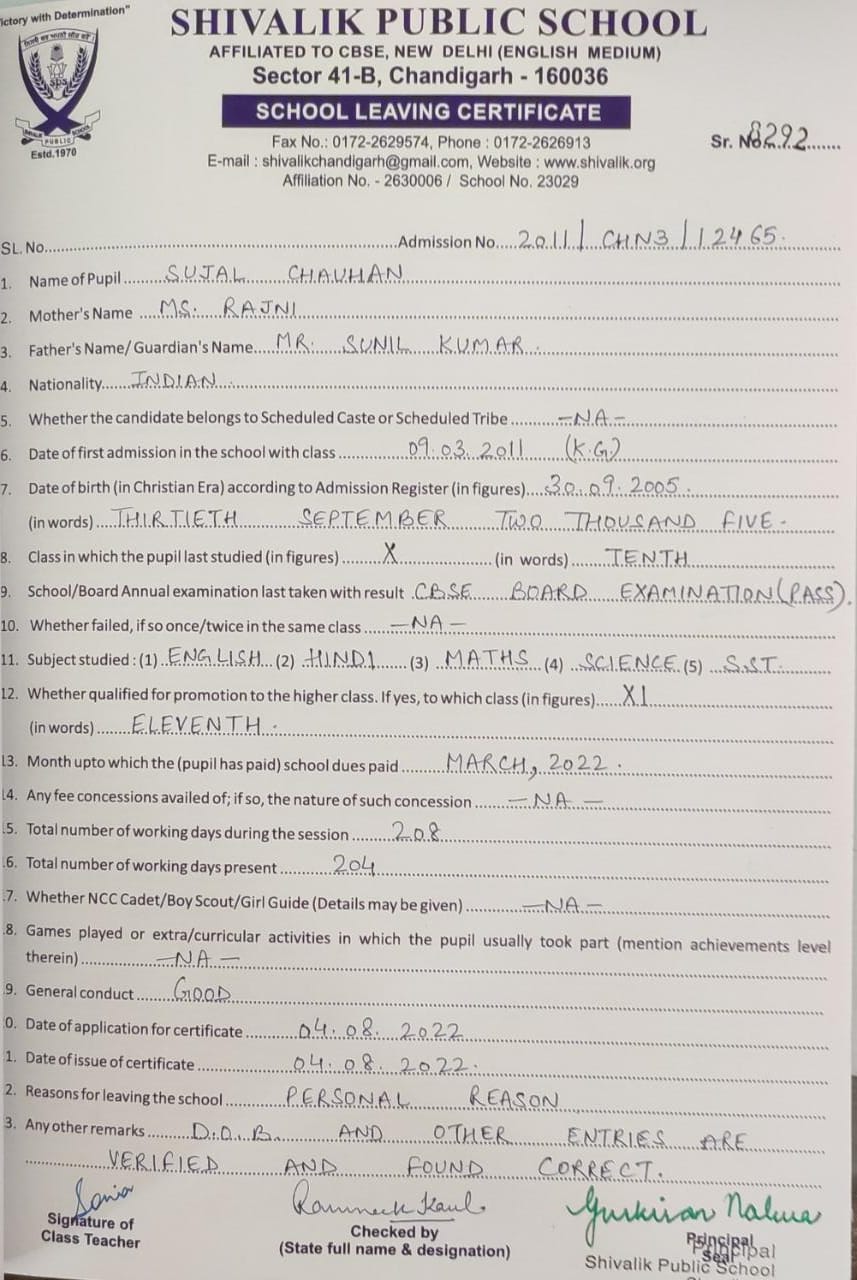 ictory with Determination"
SHIVALIK PUBLIC SCHOOL
AFFILIATED TO CBSE, NEW DELHI (ENGLISH MEDIUM)
Sector 41-B, Chandigarh - 160036
SCHOOL LEAVING CERTIFICATE
Fax No.: 0172-2629574, Phone : 0172-2626913
Sr. No. 8292
E-mail : shivalikchandigarh@gmail.com, Website : www.shivalik.org
Affiliation No. - 2630006 / School No. 23029
SPS
SHIVALIK PUBLIC SCHOOL
Estd.1970
SL. No. Admission No. 2011/CHN3/12465.
1. Name of Pupil SUJAL CHAUHAN
2. Mother's Name MS. RAJNI
3. Father's Name/ Guardian's Name MR. SUNIL KUMAR.
4. Nationality INDIAN.
5. Whether the candidate belongs to Scheduled Caste or Scheduled Tribe -NA-
6. Date of first admission in the school with class 09.03.2011 (K.G)
7. Date of birth (in Christian Era) according to Admission Register (in figures) 30.09.2005.
(in words) THIRTIETH SEPTEMBER TWO THOUSAND FIVE-
8. Class in which the pupil last studied (in figures) X (in words) TENTH
9. School/Board Annual examination last taken with result CBSE BOARD EXAMINATION (PASS).
10. Whether failed, if so once/twice in the same class -NA-
11. Subject studied : (1) ENGLISH (2) HINDI (3) MATHS (4) SCIENCE (5) S.ST.
12. Whether qualified for promotion to the higher class. If yes, to which class (in figures) XI
(in words) ELEVENTH.
13. Month upto which the (pupil has paid) school dues paid MARCH, 2022.
14. Any fee concessions availed of; if so, the nature of such concession -NA-
5. Total number of working days during the session 208
6. Total number of working days present 204
7. Whether NCC Cadet/Boy Scout/Girl Guide (Details may be given) -NA-
8. Games played or extra/curricular activities in which the pupil usually took part (mention achievements level
therein) -NA-
9. General conduct GOOD
0. Date of application for certificate 04.08.2022
1. Date of issue of certificate 04.08.2022.
2. Reasons for leaving the school PERSONAL REASON
3. Any other remarks D.O.B. AND OTHER ENTRIES ARE
VERIFIED AND FOUND CORRECT.
Sonia
Signature of
Class Teacher
Ramneek Kaul.
Checked by
(State full name & designation)
Gurkiran Nalwa
Principal
Seal
Principal
Shivalik Public School